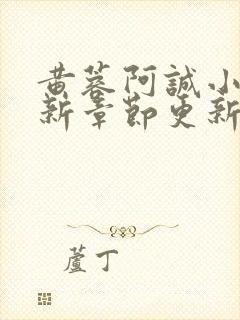 黄蓉阿誠小
新章節更新
蘆丁